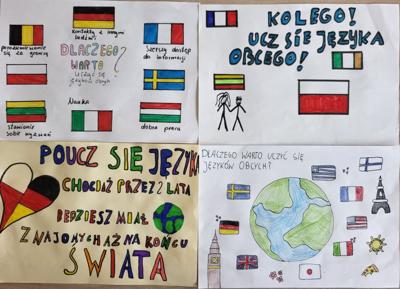 Kontakty z innymi
ludźmi
porozumiewanie
się za granicą
DLACZEGO?
WARTO
Uczyć się
języków obcych
Szerszy dostęp
do informacji
Nauka
Stawianie
sobie wyzwań
dobra praca
KOLEGO!
UCZ SIĘ JĘZYKA
OBCEGO!
POUCZ SIĘ JĘZYKA
CHOCIAŻ PRZEZ 2 LATA
BĘDZIESZ MIAŁ
ZNAJOMYCH AŻ NA KOŃCU
ŚWIATA
DLACZEGO WARTO UCZYĆ SIĘ
JĘZYKÓW OBCYCH?